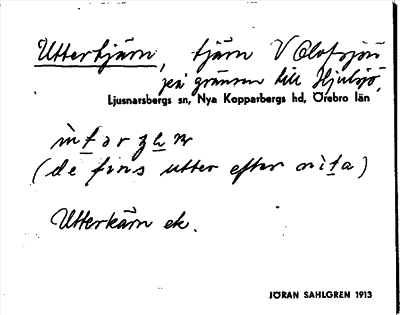 Uttertjärn, tjärn V Olofsjön
på gränsen till Hjulsjö,
Ljusnarsbergs sn, Nya Kopparbergs hd, Örebro län
(de fins utter efter
Utterkärn ek.
JÖRAN SAHLGREN 1913